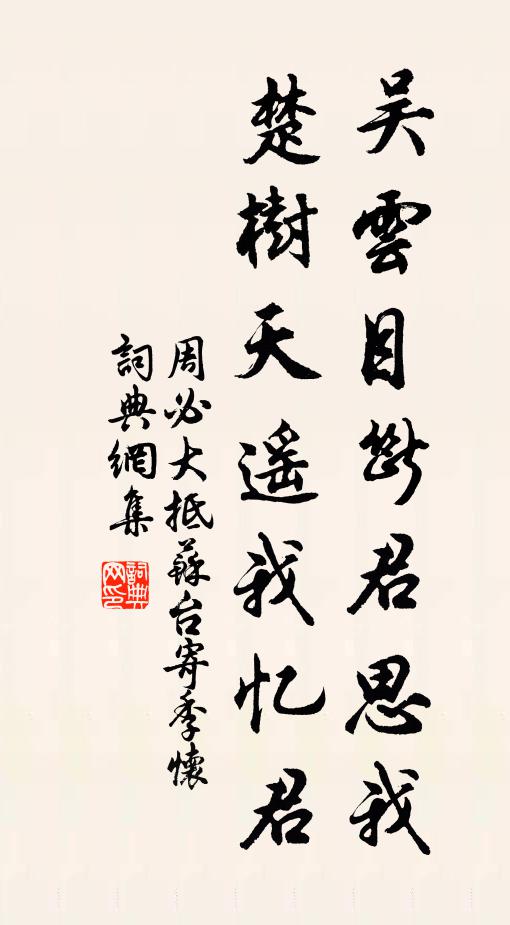 吴雲目断君思我
楚樹天遥我忆君
周必大抵蘇台寄季懷
詞典網集
詞典
网印